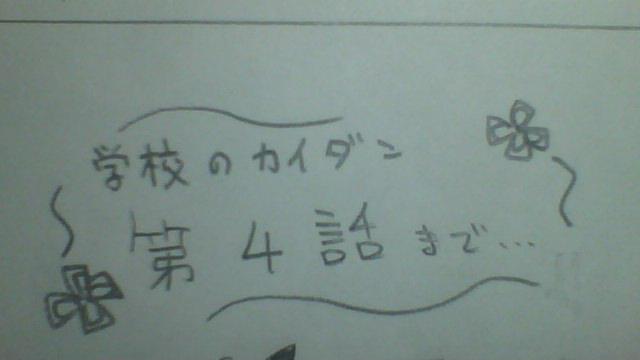 学校のカイダン
第4話まで...